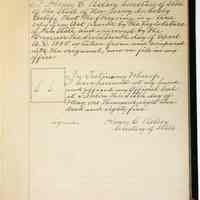 I, Henry C. Kelsey Secretary of State
of the State of New Jersey do hereby
Certify that the foregoing is a true
copy of an Act passed by the Legislature
of this State, and approved by the
Governor the day of April
A.D. 1885 as taken from and compared
with the original, now on file in my
office.
In Testimony Whereof, I
have hereunto set my hand
and affixed my Official Seal
at Trenton this day of
May one thousand eight hun-
dred and eighty five
L S
signed Henry C. Kelsey
Secretary of State